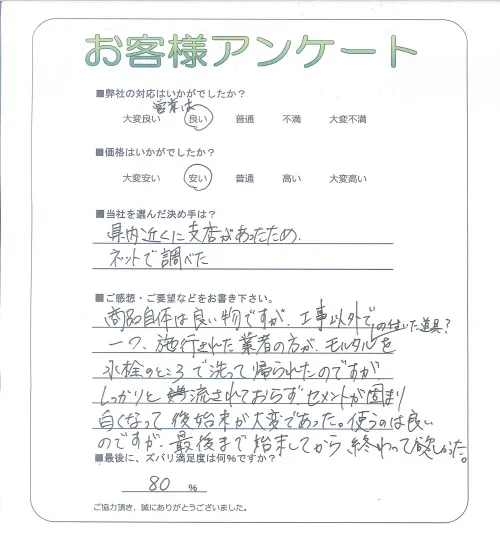 お客様アンケート
■弊社の対応はいかがでしたか?
営業は
大変良い 良い 普通 不満 大変不満
■価格はいかがでしたか?
大変安い 安い 普通 高い 大変高い
■当社を選んだ決め手は?
県内近くに支店があったため.
ネットで調べた
■ご感想・ご要望などをお書き下さい。
商品自体は良い物ですが、工事以外で
の付いた道具?
一つ、施行された業者の方が、モルタルを
水栓のところで洗って帰られたのですが
しっかりと流されておらずセメントが固まり
白くなって後始末が大変であった。使うのは良い
のですが、最後まで始末してから終わって欲しかった。
■最後に、ズバリ満足度は何%ですか?
80 %
ご協力頂き、誠にありがとうございました。